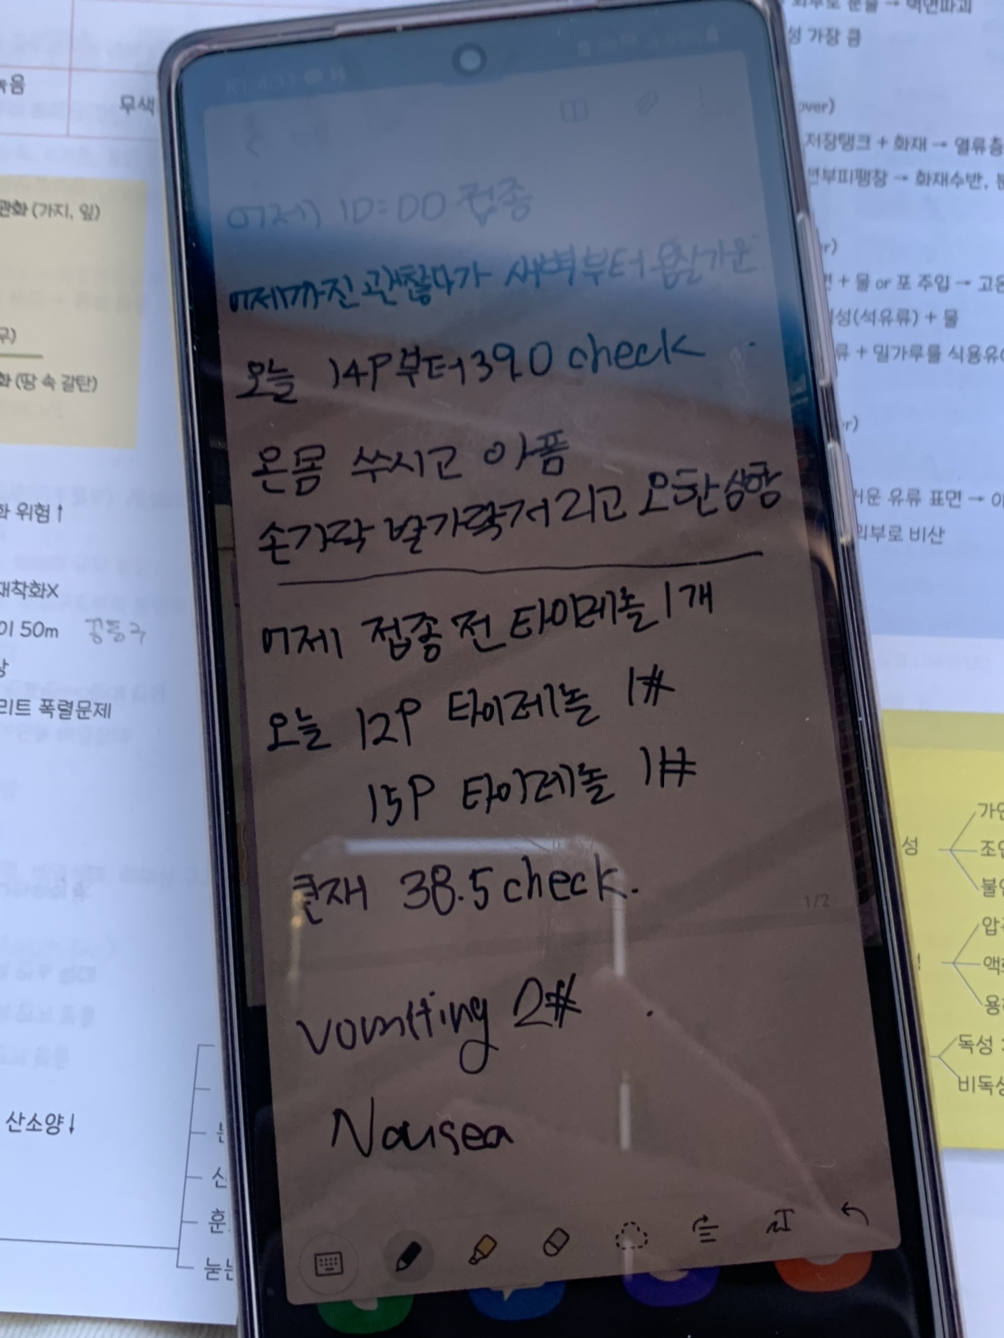 어제 10:00 접종
어제까진 괜찮다가 새벽부터 몸살기운
오늘 14P부터 39.0 check
온몸 쑤시고 아픔
손가락 발가락 저리고 오한 상황
어제 접종 전 타이레놀 1개
오늘 12P 타이레놀 1#
15P 타이레놀 1#
현재 38.5 check.
1/2
vomitting 2#
Nausea
무색
관화 (가지, 잎)
화 (땅 속 갈탄)
화 위험↑
재착화X
이 50m
리트 폭렬문제
산소양↓
성 가장 큼
저장탱크 + 화재 → 열류층
변부피팽창 → 화재수반,
면 + 물 or 포 주입 → 고온
성(석유류) + 물
류 + 밀가루를 식용유
거운 유류 표면 →
외부로 비산
성
압
액
독성
비독성